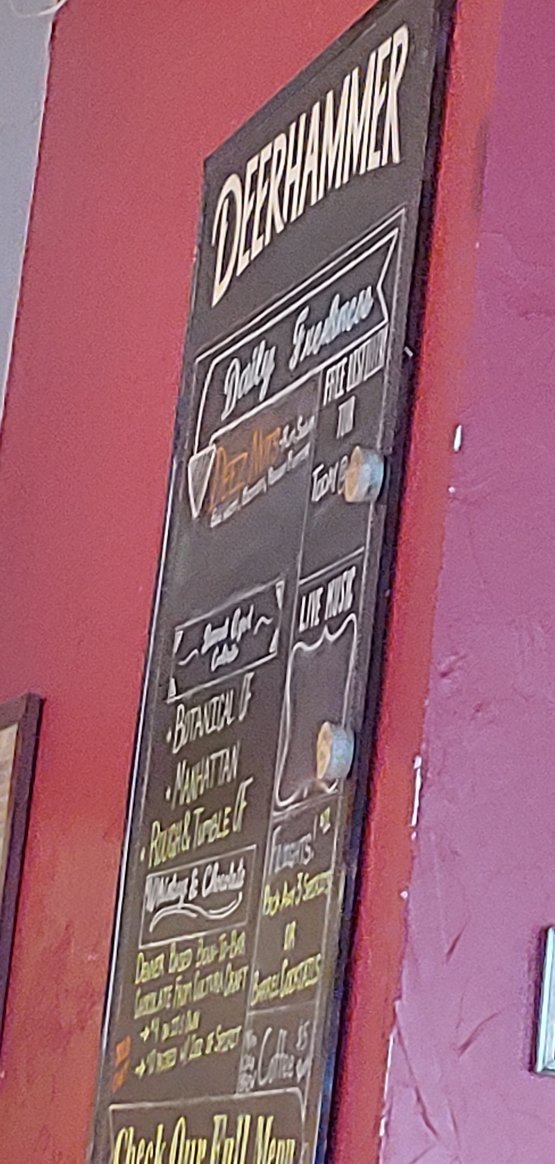 DEERHAMMER
Daily Freshness
DEEZ NUTS
FREE DISTILLERY
TOUR
TODAY @
LIVE MUSIC
Barrel Aged
Cocktails
• BOTANICAL OF
• MANHATTAN
• ROUGH & TUMBLE OF
Whiskey & Chocolate
DENVER BASED BEAN-TO-BAR
CHOCOLATE FROM CULTURA CRAFT
FLIGHTS!
PICK ANY 3 SPIRITS
OR
BARREL COCKTAILS
Coffee $5
Check Our Full Menu